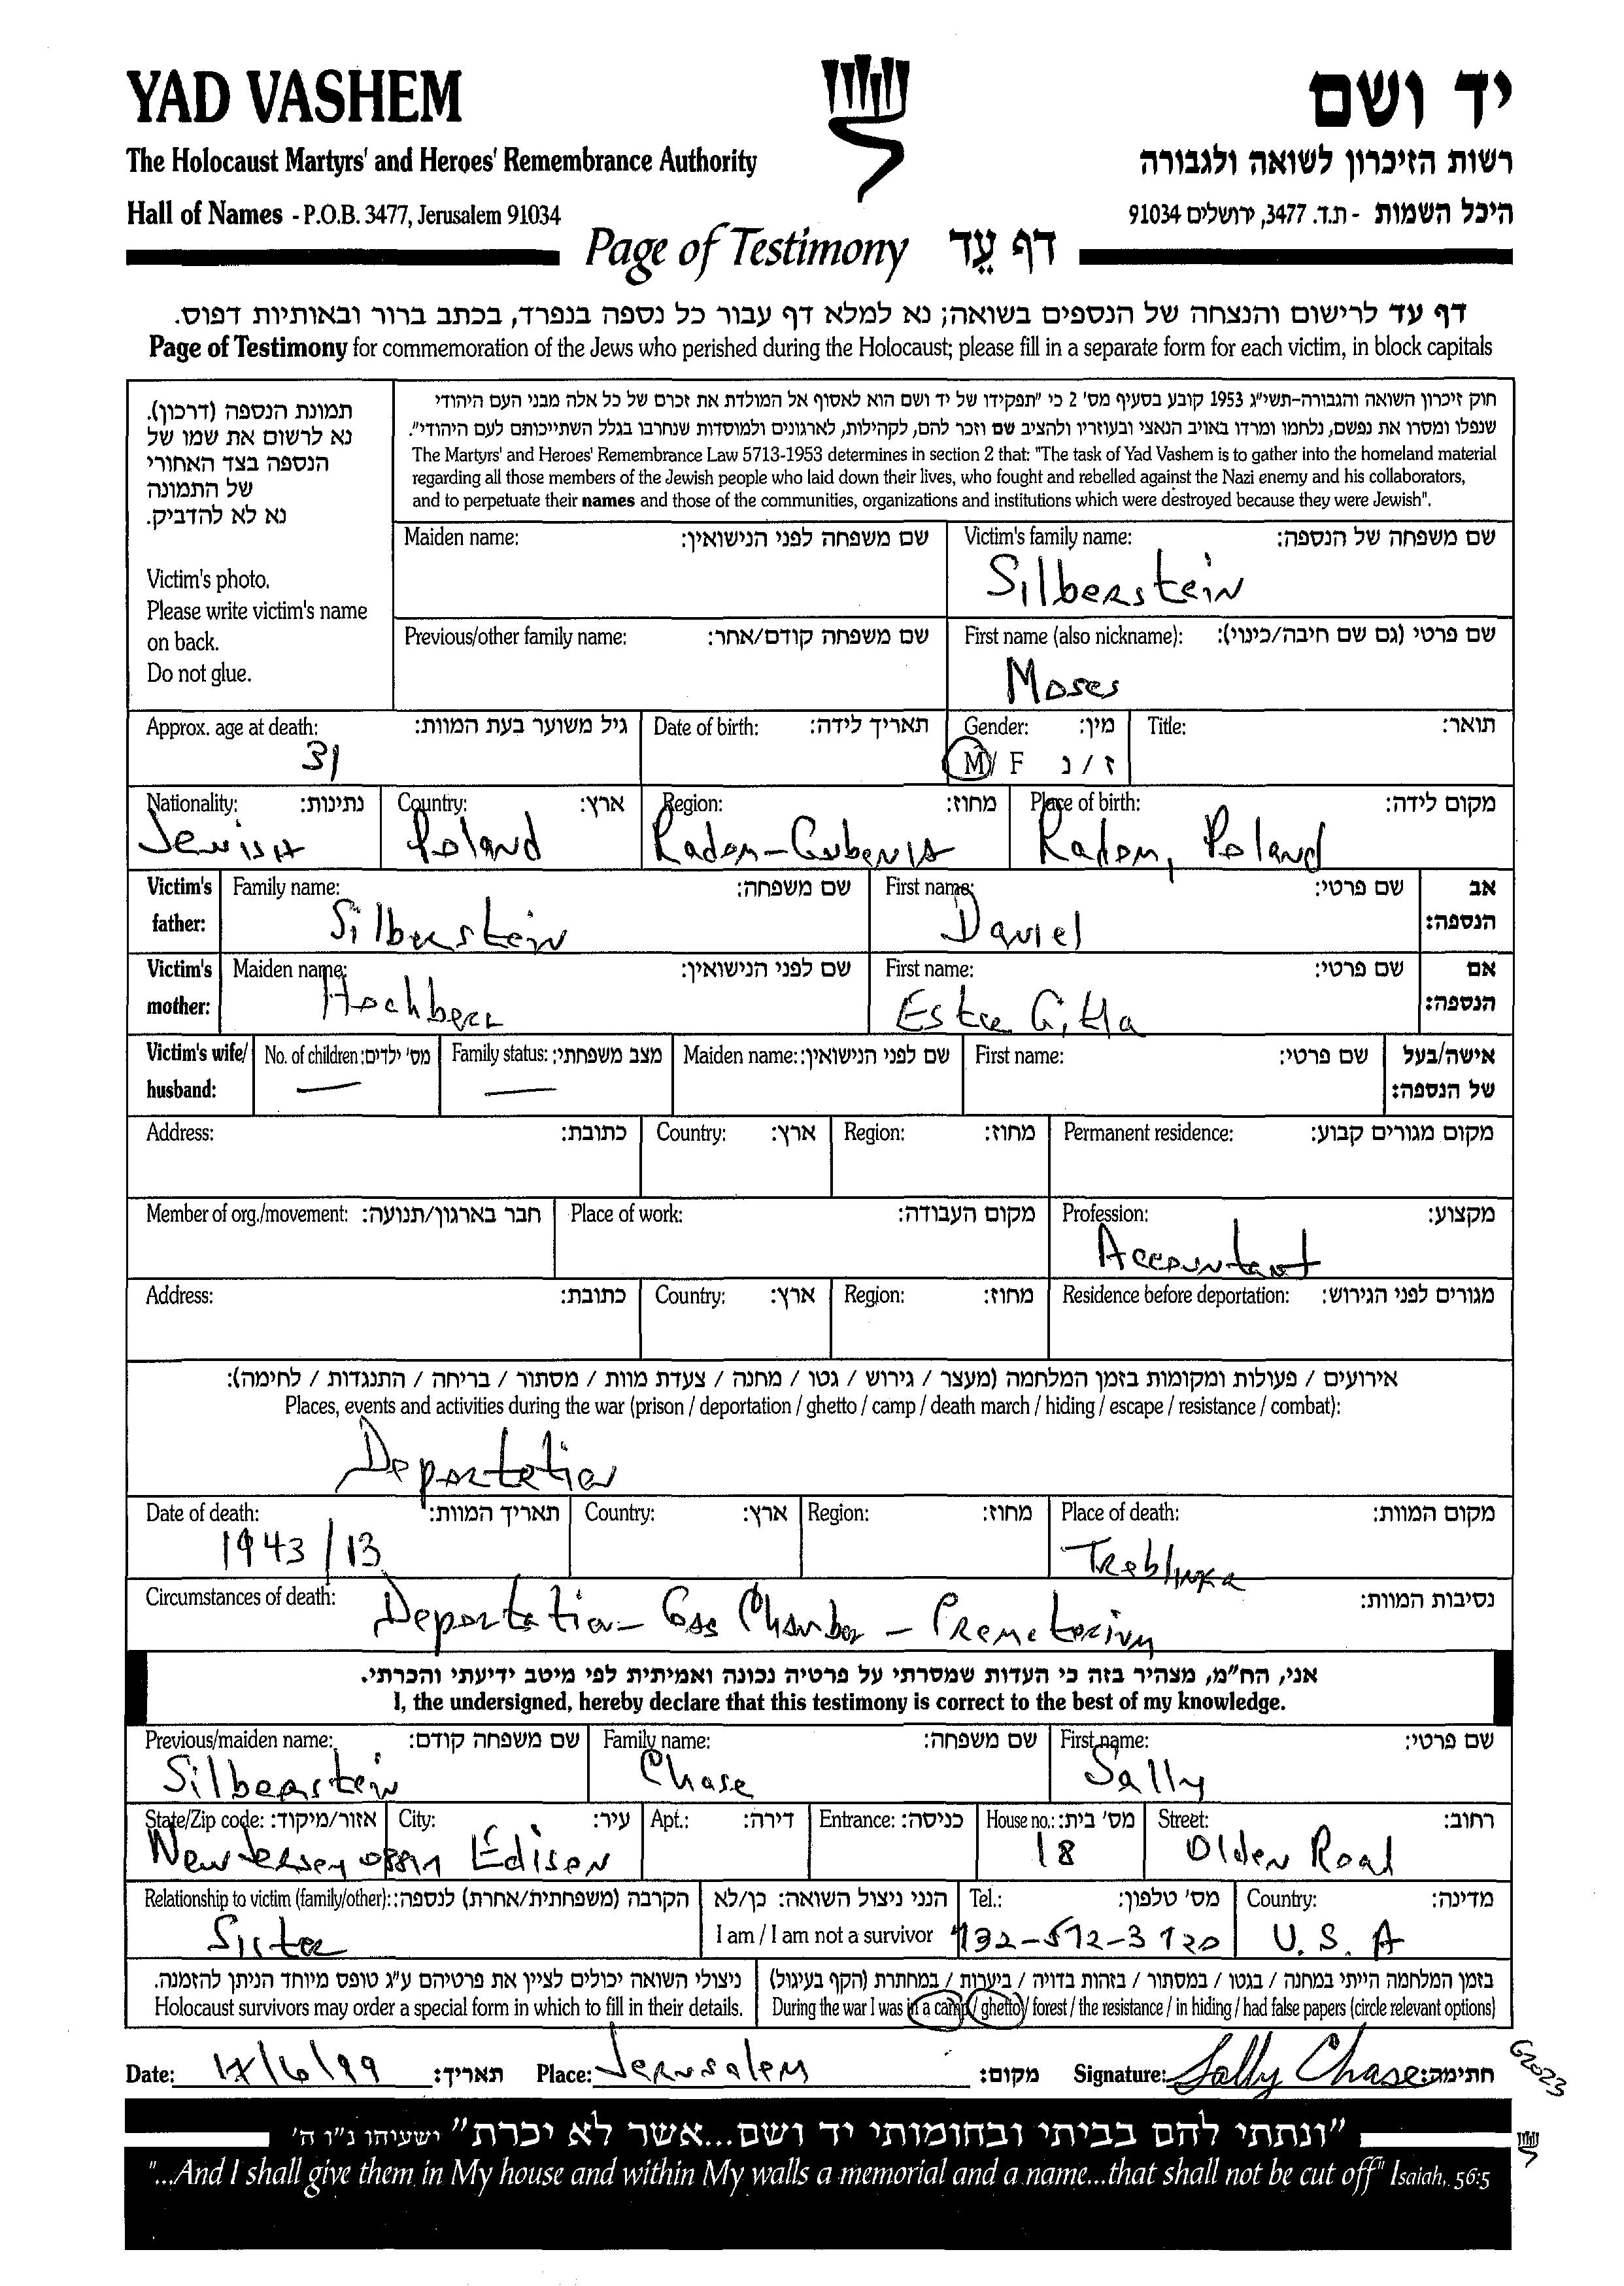 YAD VASHEM
יד ושם
The Holocaust Martyrs' and Heroes' Remembrance Authority
רשות הזיכרון לשואה ולגבורה
Hall of Names - P.O.B. 3477, Jerusalem 91034
היכל השמות - ת.ד. 3477, ירושלים 91034
Page of Testimony דף עֵד
דף עד לרישום והנצחה של הנספים בשואה; נא למלא דף עבור כל נספה בנפרד, בכתב ברור ובאותיות דפוס.
Page of Testimony for commemoration of the Jews who perished during the Holocaust; please fill in a separate form for each victim, in block capitals
תמונת הנספה (דרכון).
נא לרשום את שמו של
הנספה בצד האחורי
של התמונה
נא לא להדביק.
Victim's photo.
Please write victim's name
on back.
Do not glue.
חוק זיכרון השואה והגבורה-תשי"ג 1953 קובע בסעיף מס' 2 כי "תפקידו של יד ושם הוא לאסוף אל המולדת את זכרם של כל אלה מבני העם היהודי
שנפלו ומסרו את נפשם, נלחמו ומרדו באויב הנאצי ובעוזריו ולהציב שם וזכר להם, לקהילות, לארגונים ולמוסדות שנחרבו בגלל השתייכותם לעם היהודי".
The Martyrs' and Heroes' Remembrance Law 5713-1953 determines in section 2 that: "The task of Yad Vashem is to gather into the homeland material
regarding all those members of the Jewish people who laid down their lives, who fought and rebelled against the Nazi enemy and his collaborators,
and to perpetuate their names and those of the communities, organizations and institutions which were destroyed because they were Jewish".
Maiden name: שם משפחה לפני הנישואין:
Victim's family name: שם משפחה של הנספה:
Silberstein
Previous/other family name: שם משפחה קודם/אחר:
First name (also nickname): שם פרטי (גם שם חיבה/כינוי):
Moses
Approx. age at death: גיל משוער בעת המוות:
31
Date of birth: תאריך לידה:
Gender: מין:
M / F ז / נ
Title: תואר:
Nationality: נתינות:
Jewish
Country: ארץ:
Poland
Region: מחוז:
Radom-Gubernia
Place of birth: מקום לידה:
Radom, Poland
Victim's father: Family name: שם משפחה:
Silberstein
First name: שם פרטי: אב הנספה:
Daniel
Victim's mother: Maiden name: שם לפני הנישואין:
Hochberg
First name: שם פרטי: אם הנספה:
Ester Gitta
Victim's wife/ husband: No. of children: מס' ילדים:
—
Family status: מצב משפחתי:
—
Maiden name: שם לפני הנישואין:
First name: שם פרטי: אישה/בעל של הנספה:
Address: כתובת: Country: ארץ: Region: מחוז: Permanent residence: מקום מגורים קבוע:
Member of org./movement: חבר בארגון/תנועה: Place of work: מקום העבודה: Profession: מקצוע:
Accountant
Address: כתובת: Country: ארץ: Region: מחוז: Residence before deportation: מגורים לפני הגירוש:
אירועים / פעולות ומקומות בזמן המלחמה (מעצר / גירוש / גטו / מחנה / צעדת מוות / מסתור / בריחה / התנגדות / לחימה):
Places, events and activities during the war (prison / deportation / ghetto / camp / death march / hiding / escape / resistance / combat):
Deportation
Date of death: תאריך המוות:
1943/13
Country: ארץ: Region: מחוז: Place of death: מקום המוות:
Treblinka
Circumstances of death: נסיבות המוות:
Deportation - Gas Chamber - Crematorium
אני, הח"מ, מצהיר בזה כי העדות שמסרתי על פרטיה נכונה ואמיתית לפי מיטב ידיעתי והכרתי.
I, the undersigned, hereby declare that this testimony is correct to the best of my knowledge.
Previous/maiden name: שם משפחה קודם:
Silberstein
Family name: שם משפחה:
Chase
First name: שם פרטי:
Sally
State/Zip code: אזור/מיקוד:
New Jersey
City: עיר:
Edison
Apt.: דירה: Entrance: כניסה: House no.: מס' בית:
18
Street: רחוב:
Olden Road
Relationship to victim (family/other): הקרבה (משפחתית/אחרת) לנספה:
Sister
הנני ניצול השואה: כן/לא
I am / I am not a survivor
Tel.: מס' טלפון:
732-572-3720
Country: מדינה:
U.S.A
ניצולי השואה יכולים לציין את פרטיהם ע"ג טופס מיוחד הניתן להזמנה.
Holocaust survivors may order a special form in which to fill in their details.
בזמן המלחמה הייתי במחנה / בגטו / במסתור / בזהות בדויה / ביערות / במחתרת (הקף בעיגול)
During the war I was in a camp / ghetto / forest / the resistance / in hiding / had false papers (circle relevant options)
Date: 17/6/99 תאריך: Place: Jerusalem מקום: Signature: Sally Chase חתימה:
G2023
"ונתתי להם בביתי ובחומותי יד ושם...אשר לא יכרת" ישעיהו נ"ו ה'
"...And I shall give them in My house and within My walls a memorial and a name...that shall not be cut off" Isaiah, 56:5